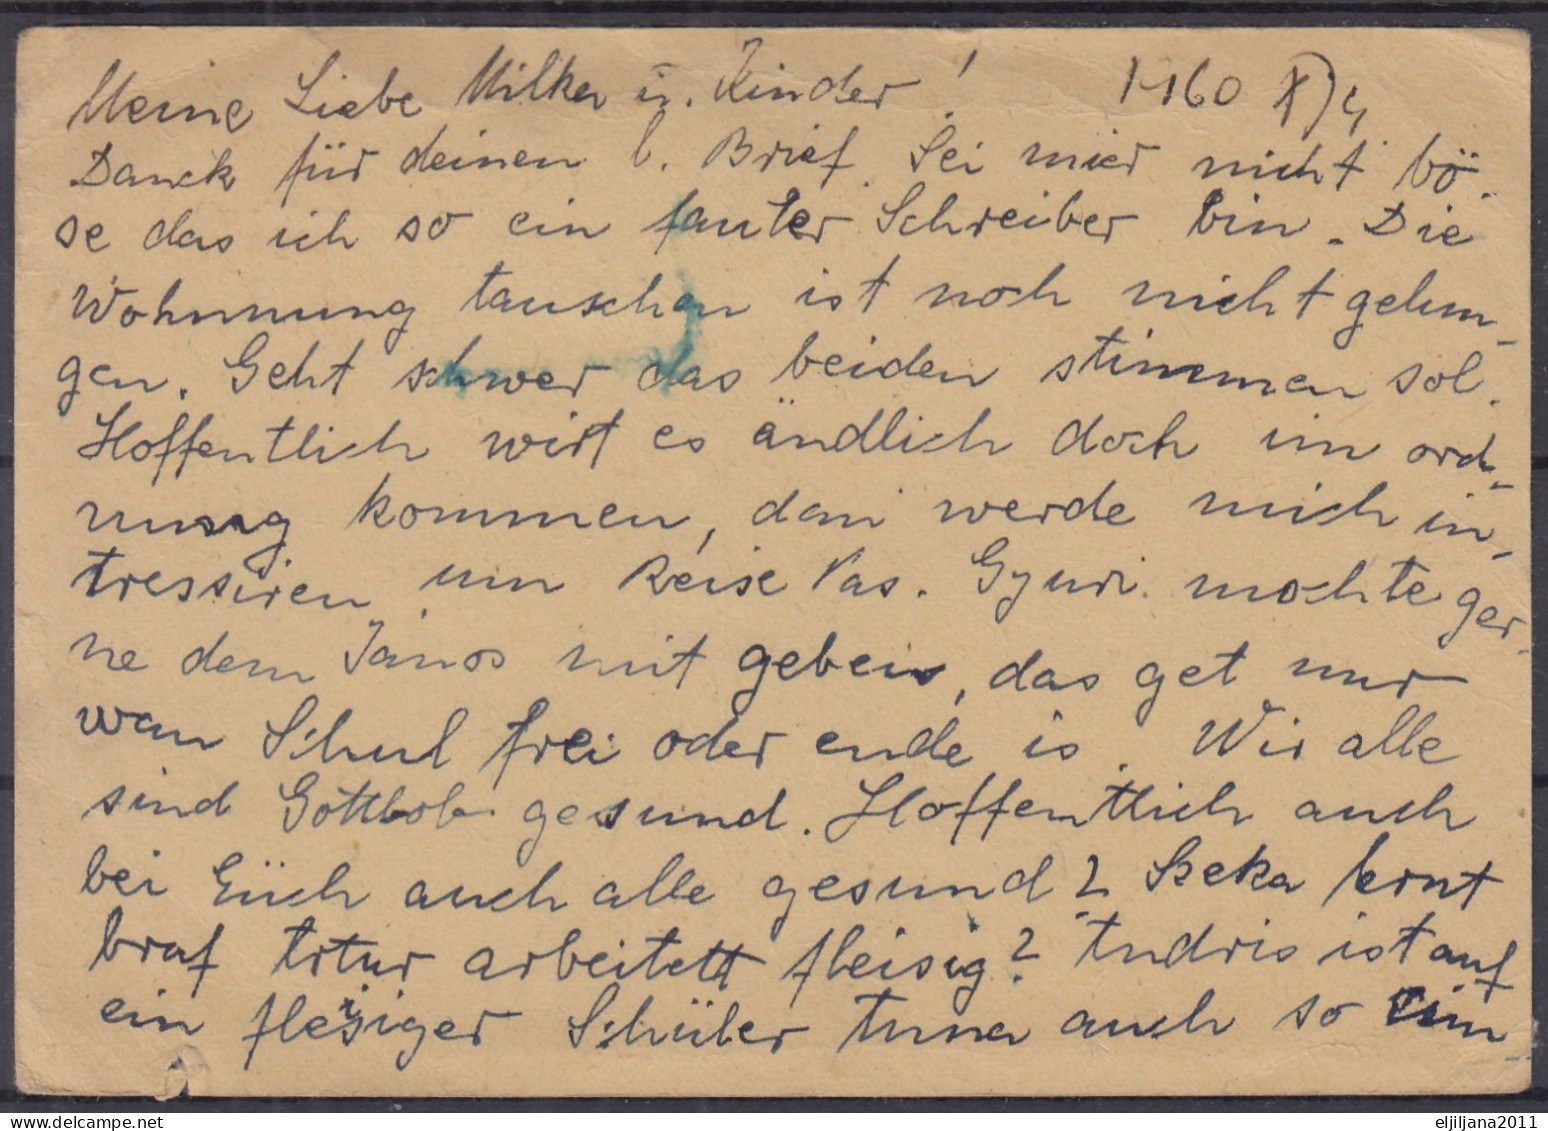 Meine Liebe Milka u. Kinder! 1960 X) 4
Danck für deinen l. Brief. Sei mier nicht bö-
se das ich so ein fauler Schreiber bin. Die
Wohnnung tauschen ist noch nicht gelun-
gen. Geht schwer das beiden stimmen sol.
Hoffentlich wirt es ändlich doch im ord-
nung kommen, dan werde mich in-
tressiren um Reise Pas. Gyuri mochte ger-
ne dem János mit geben, das get nur
wan Schul frei oder ende is. Wir alle
sind Gottlob gesund. Hoffentlich auch
bei Eüch auch alle gesund? Szeka lernt
braf Artur arbeitett fleisig? Andris ist auf
ein fleisiger Schüler Anna auch so ein
eljiljana2011